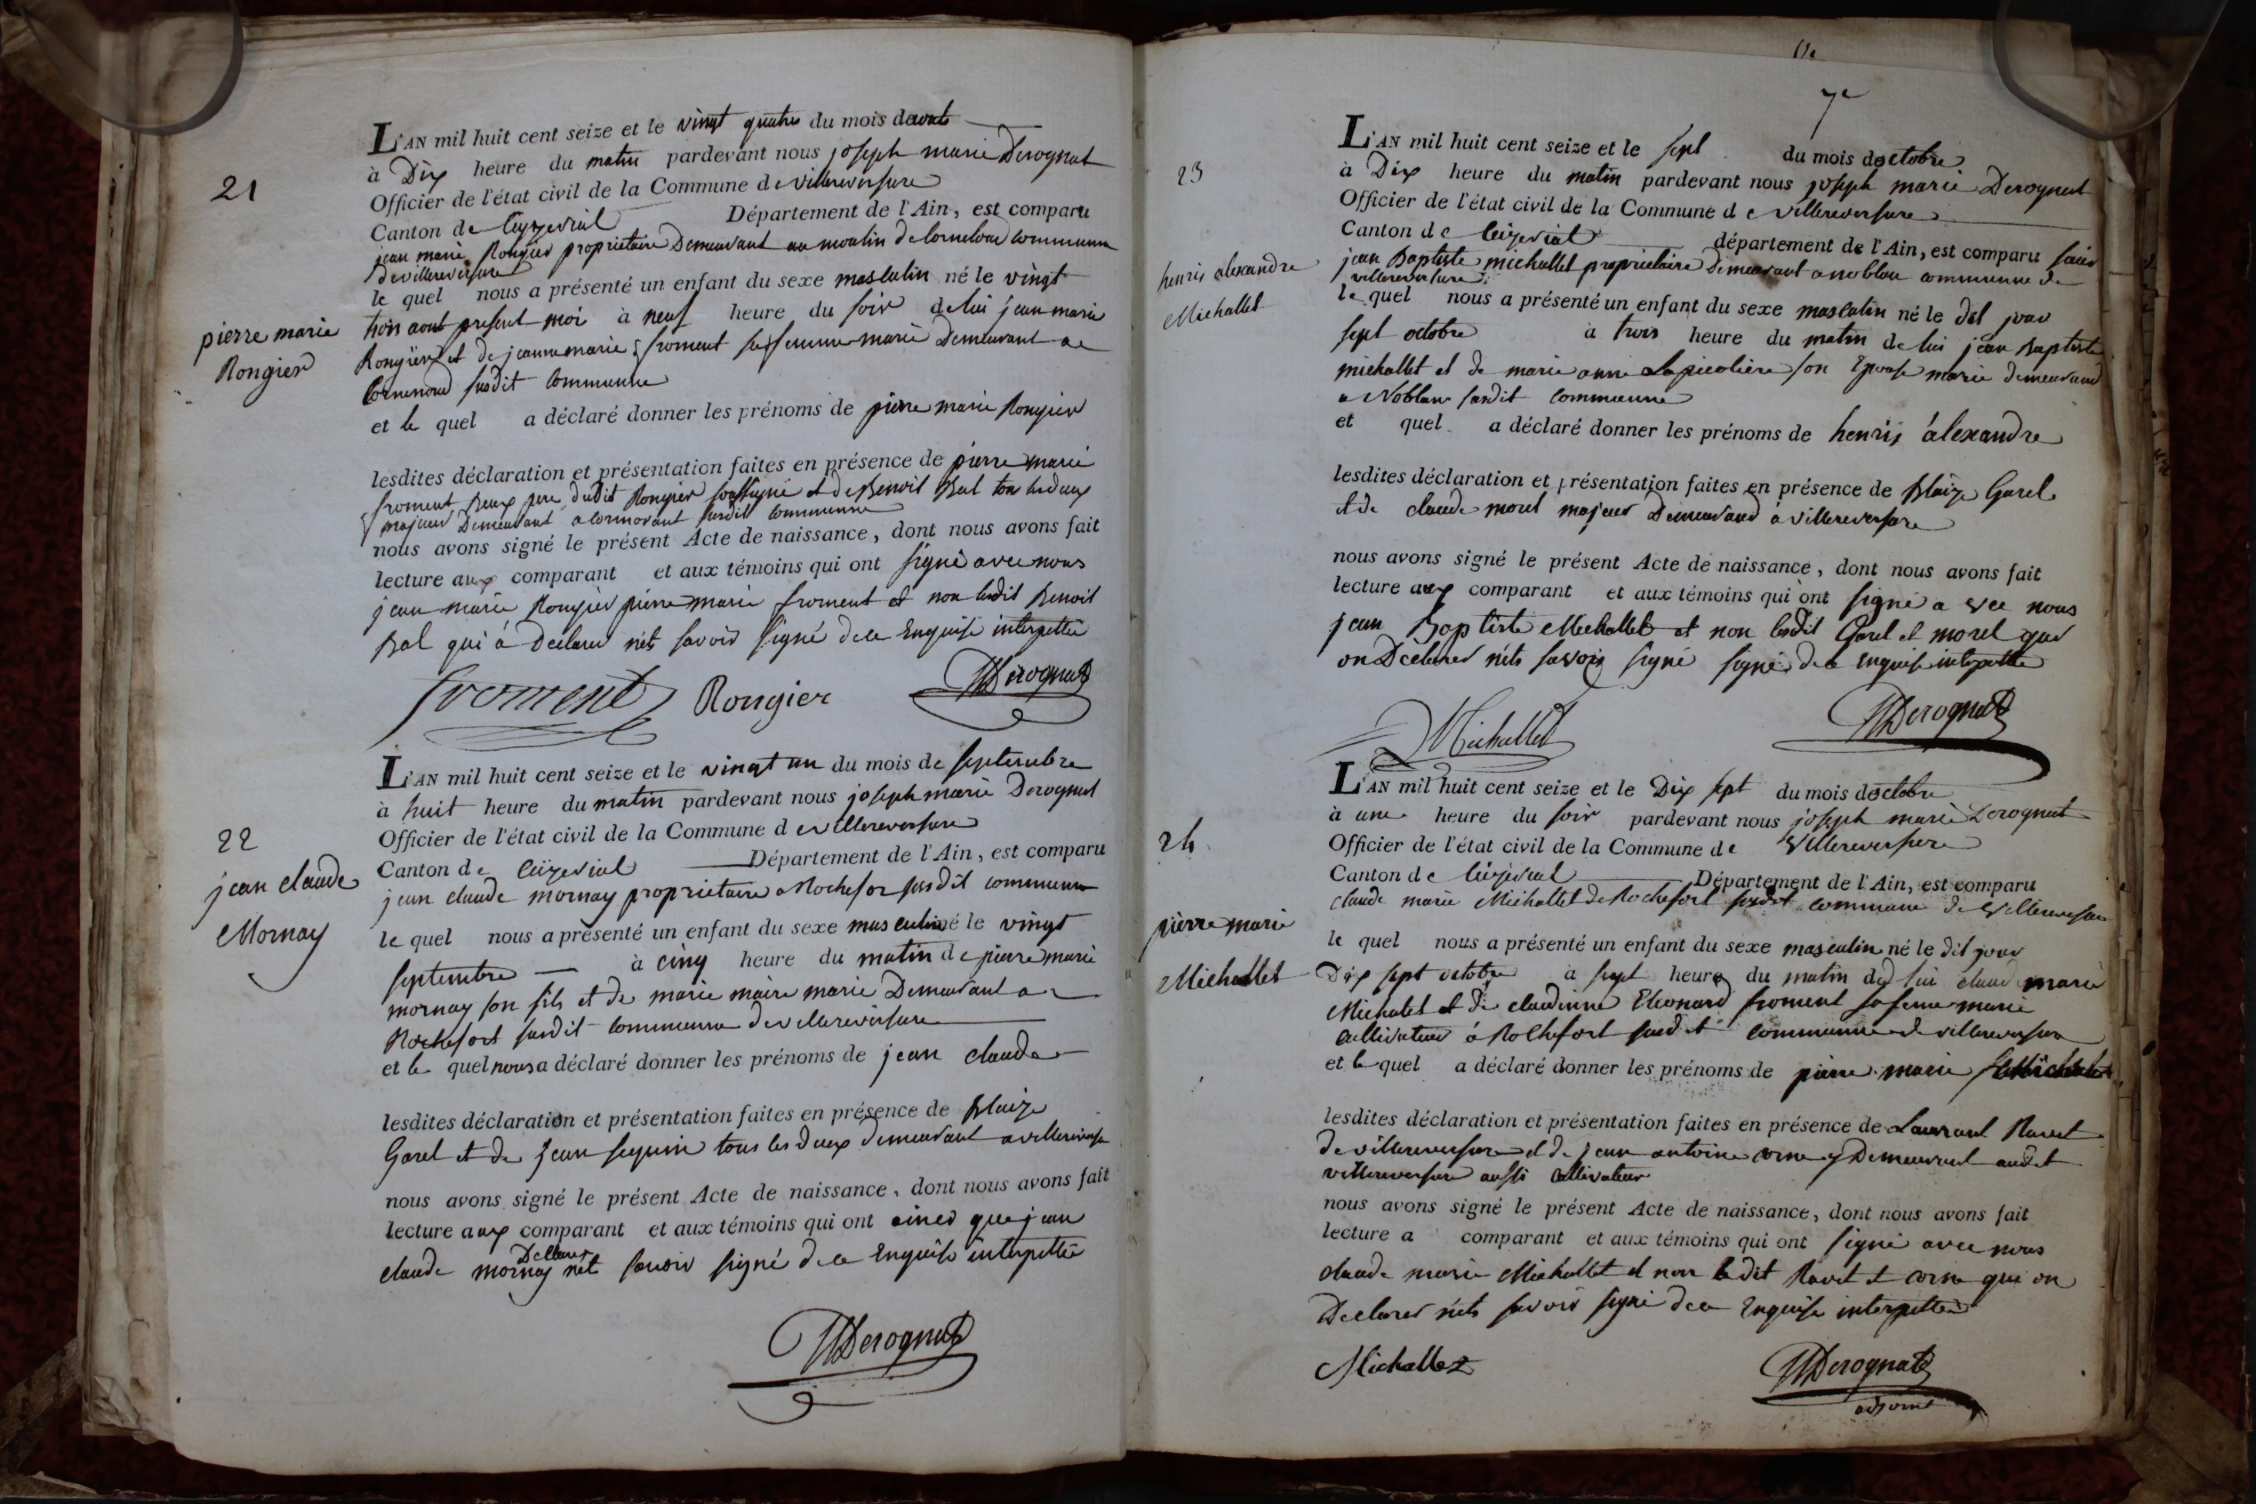 21
pierre marie
Rongier
L'AN mil huit cent seize et le vingt quatre du mois daout
à Dix heure du matin pardevant nous joseph marie Derognat
Officier de l'état civil de la Commune de villereversure
Canton de Ceyzeriat Département de l'Ain, est comparu
jean marie Rongier proprietaire Demeurant au moulin de commune
de villereversure
le quel nous a présenté un enfant du sexe masculin né le vingt
trois aout present moi à neuf heure du soir de lui jean marie
Rongier et de jeanne marie froment sa femme marie Demeurant a
susdit commune
et le quel a déclaré donner les prénoms de pierre marie Rongier
lesdites déclaration et présentation faites en présence de pierre marie
froment Beux pere dudit Rongier soussigné et de Benoit Bal tou les deux
majeur Demeurant a susdit commune
nous avons signé le présent Acte de naissance, dont nous avons fait
lecture aux comparant et aux témoins qui ont signé avec nous
jean marie Rongier pierre marie froment et non ledit Benoit
Bal qui à Declarer nets savoir signé de ce Enquise interpettée
froment Rongier Derognat
22
jean claude
Mornay
L'AN mil huit cent seize et le vingt un du mois de septembre
à huit heure du matin pardevant nous joseph marie Derognat
Officier de l'état civil de la Commune de villereversure
Canton de Ceÿzeriat Département de l'Ain, est comparu
jean claude mornay proprietaire a Rochefor susdit commune
le quel nous a présenté un enfant du sexe masculin né le vingt
septembre à cinq heure du matin de pierre marie
mornay son fils et de marie maire marie Demeurant a
Rochefort susdit commune de villereversure
et le quel nous a déclaré donner les prénoms de jean claude
lesdites déclaration et présentation faites en présence de Blaize
Garel et de jean seguin tous les deux demeurant a villereversure
nous avons signé le présent Acte de naissance, dont nous avons fait
lecture aux comparant et aux témoins qui ont que jean
Declarer
claude mornay nets savoir signé de ce Enquise interpettée
Derognat
7e
23
henris alexandre
Michallet
L'AN mil huit cent seize et le sept du mois doctobre
à Dix heure du matin pardevant nous joseph marie Derognat
Officier de l'état civil de la Commune de villereversure
Canton de Ceÿzeriat département de l'Ain, est comparu
jean Baptiste michallet proprietaire Demeurant a noblan commune de
villereversure
le quel nous a présenté un enfant du sexe masculin né le dit jour
sept octobre à trois heure du matin de lui jean Baptiste
michallet et de marie anne Lapicolière son Epouse marie demeurand
a Noblan susdit commune
et quel a déclaré donner les prénoms de henris álexandre
lesdites déclaration et présentation faites en présence de Blaize Garel
et de claude morel majeur Demeurand à villereversure
nous avons signé le présent Acte de naissance, dont nous avons fait
lecture aux comparant et aux témoins qui ont signé a vec nous
jean Baptiste Michallet et non lesdit Garel et morel que
on Déclarer nets savoir signé signé de ce Enquise interpettée
Michallet Derognat
24
pierre marie
Michallet
L'AN mil huit cent seize et le Dix sept du mois doctobre
à une heure du soir pardevant nous joseph marie Derognat
Officier de l'état civil de la Commune de Villereversure
Canton de Ceÿzeriat Département de l'Ain, est comparu
claude marie Michallet de Rochefort susdit commune de Villereversure
le quel nous a présenté un enfant du sexe masculin né le dit jour
Dix sept octobre à sept heure du matin de lui claude marie
Michalet et de claudinne Eleonard froment sa femme marie
cultivateur à Rochefort susdit commune de villereversure
et le quel a déclaré donner les prénoms de pierre marie
lesdites déclaration et présentation faites en présence de Laurant Ravet
de villereversure et de jean antoine Demeurant audit
villereversure aussi cultivateur
nous avons signé le présent Acte de naissance, dont nous avons fait
lecture a comparant et aux témoins qui ont signé avec nous
claude marie Michallet et non ledit Ravet et corne qui on
Declarer nets savoir signé de ce Enquise interpettée
Michallet Derognat
adjoint